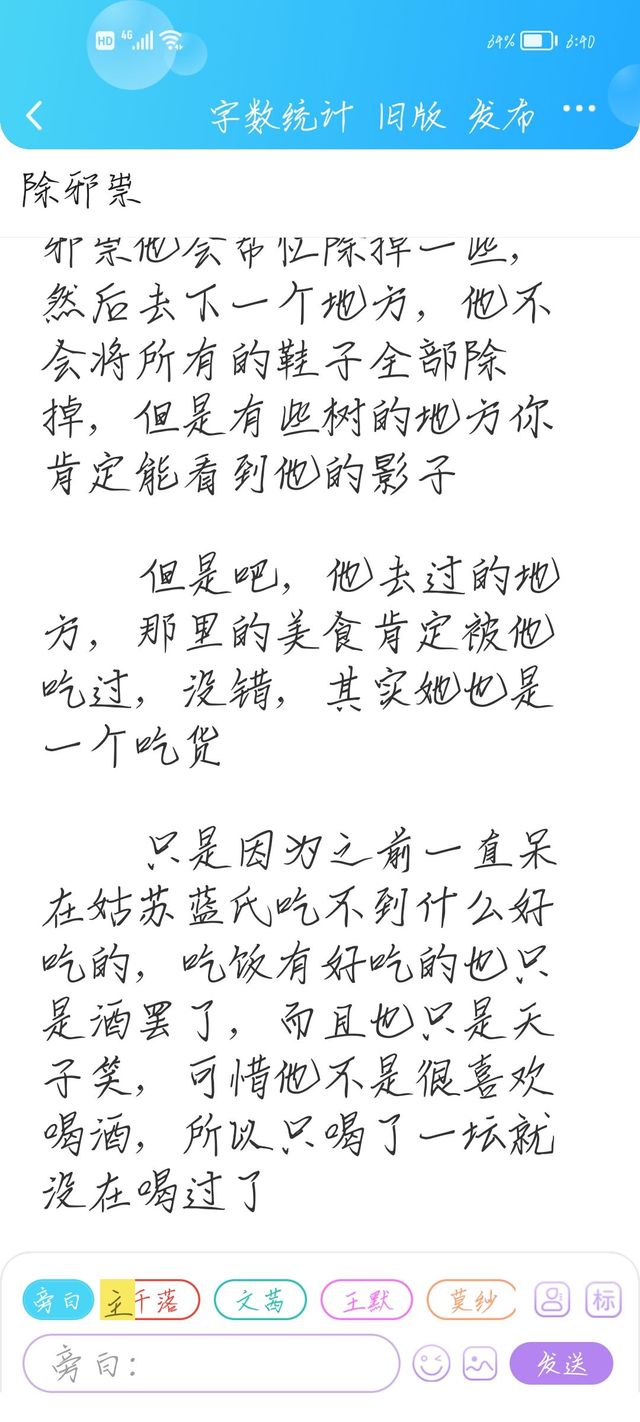 HD 4G 64% 6:40
字数统计 旧版 发布
除邪祟
邪祟他会帮忙除掉一些，
然后去下一个地方，他不
会将所有的鞋子全部除
掉，但是有些树的地方你
肯定能看到他的影子
但是吧，他去过的地
方，那里的美食肯定被他
吃过，没错，其实她也是
一个吃货
只是因为之前一直呆
在姑苏蓝氏吃不到什么好
吃的，吃饭有好吃的也只
是酒罢了，而且也只是天
子笑，可惜他不是很喜欢
喝酒，所以只喝了一坛就
没在喝过了
旁白 主 千落 文茜 王默 莫纱 标
旁白： 发送